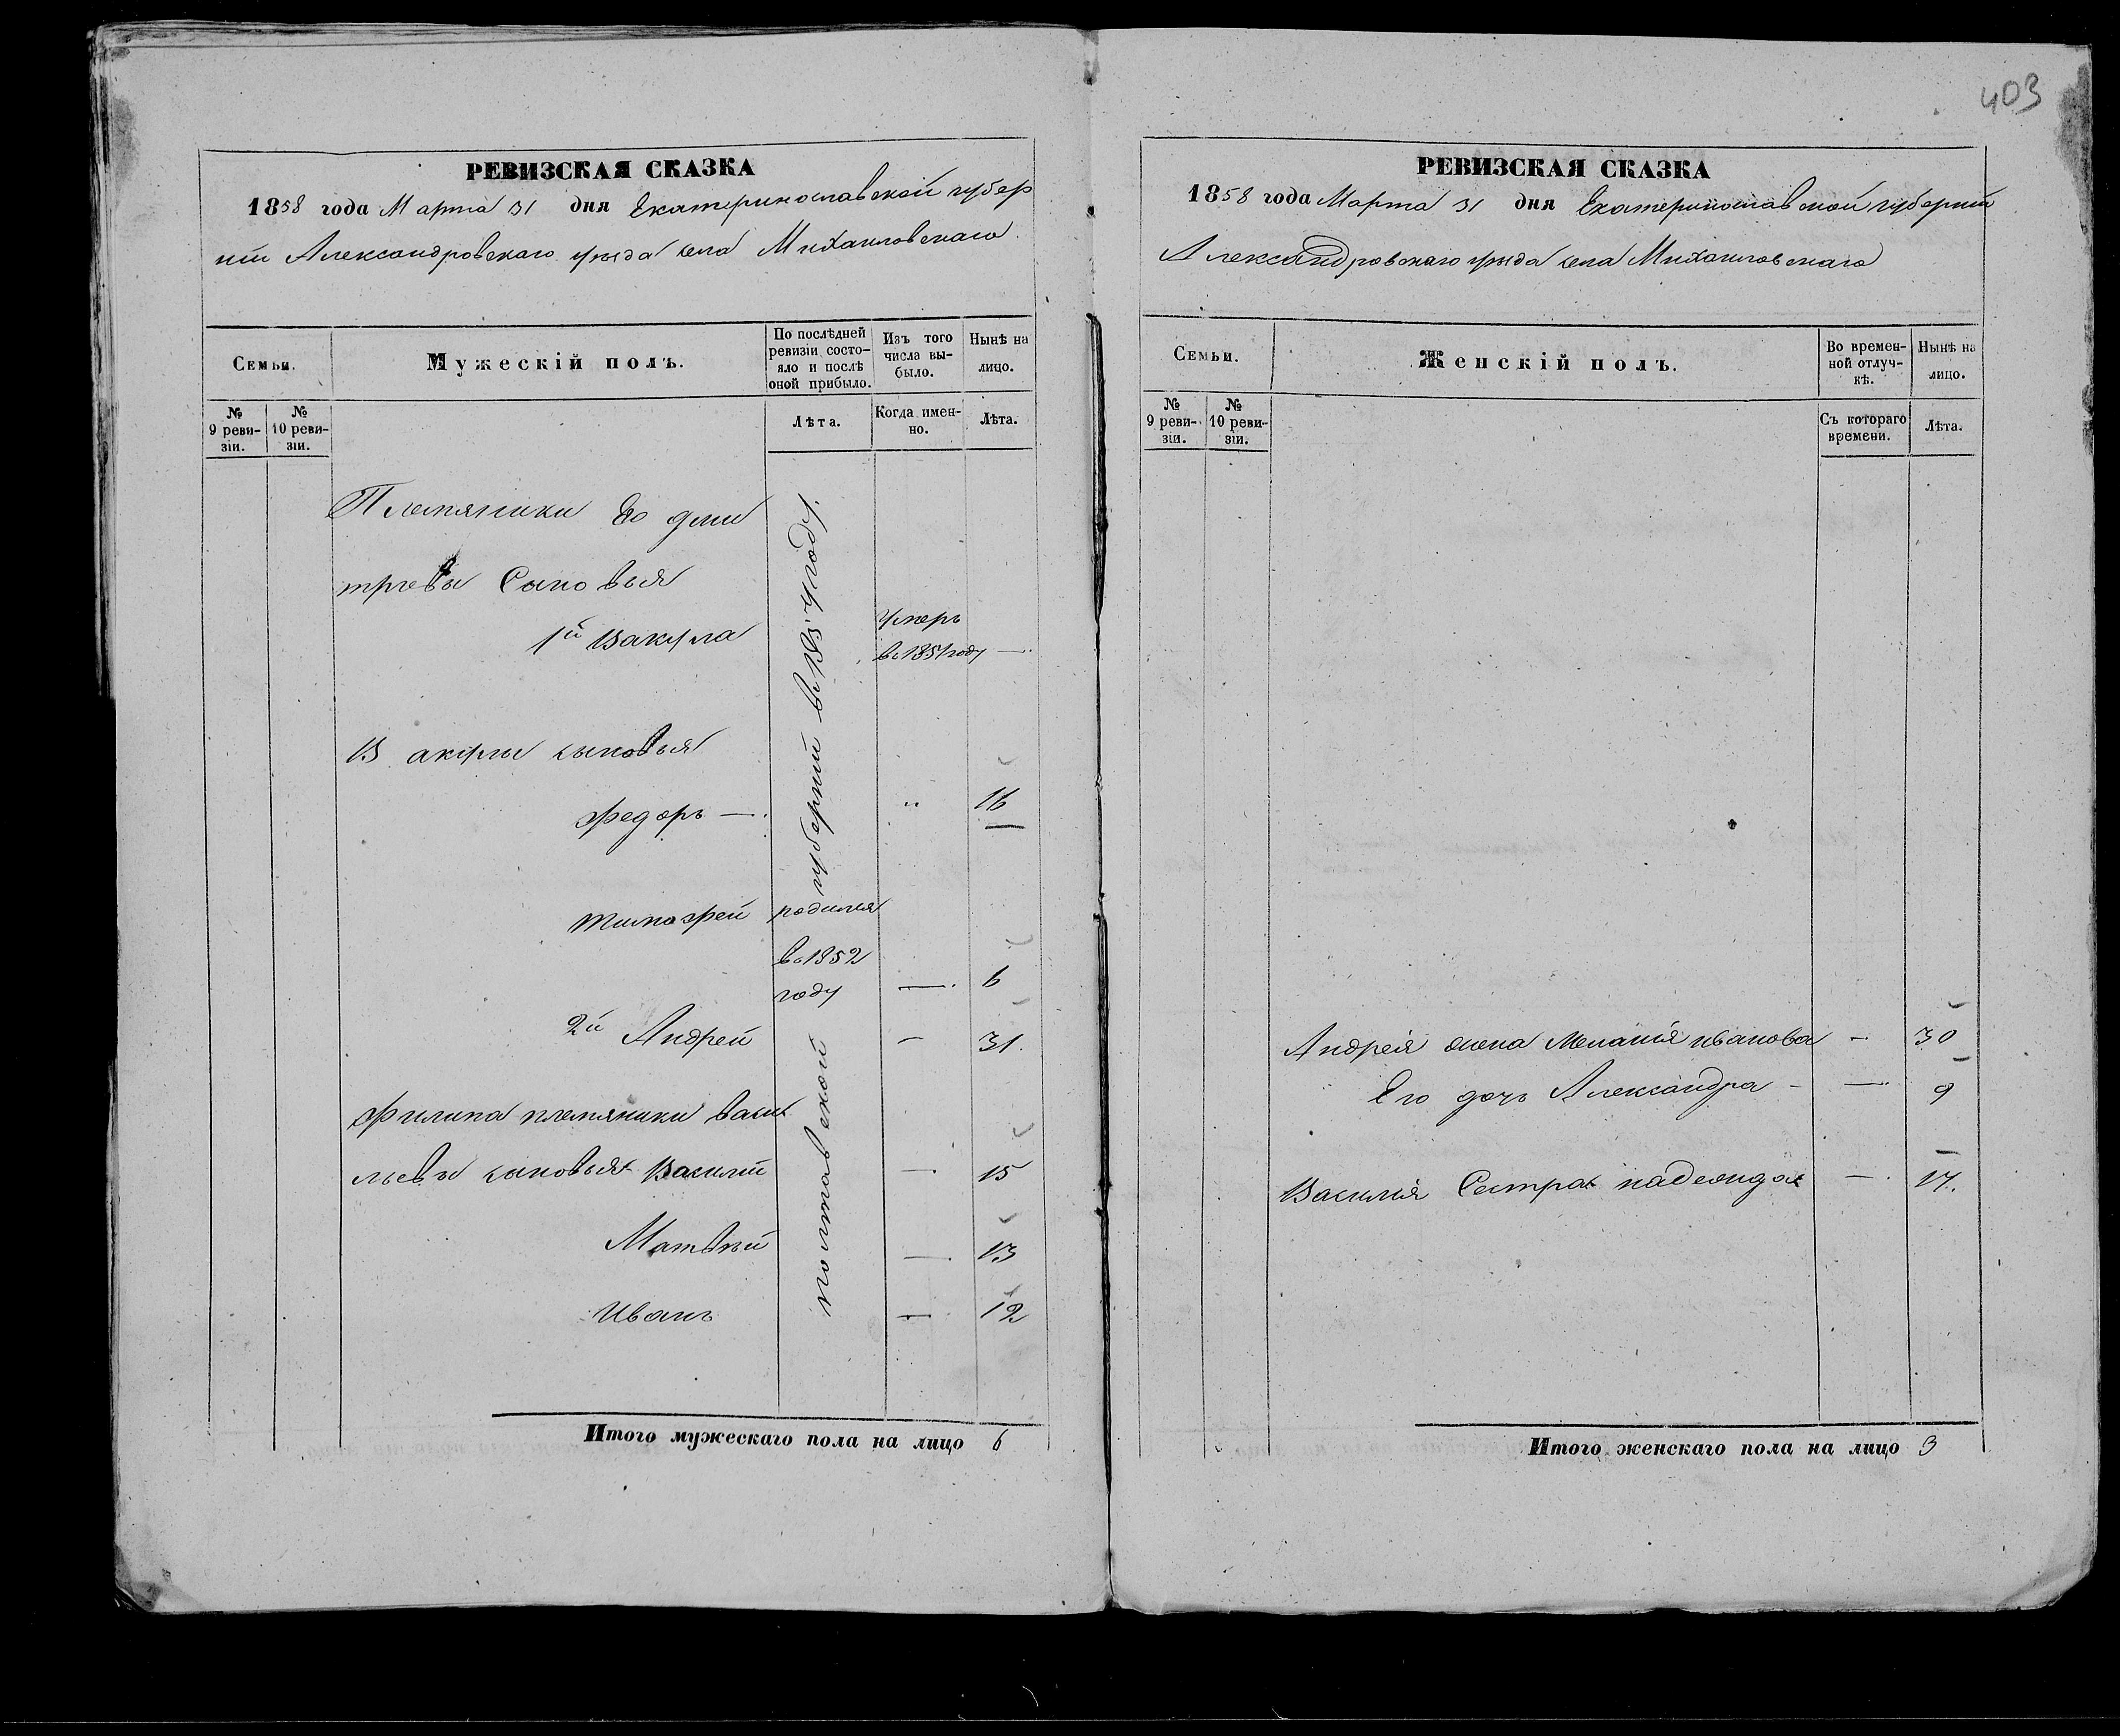 403
РЕВИЗСКАЯ СКАЗКА
1858 года Марта 31 дня Екатеринославской губер
нии Александровскаго уезда села Михайловскаго
Семьи.
Мужескій полъ.
По послѣдней ревизіи состояло и послѣ оной прибыло.
Изъ того числа выбыло.
Нынѣ на лицо.
№ 9 ревизіи.
№ 10 ревизіи.
Лѣта.
Когда именно.
Лѣта.
Племяники Его дми
тріевы Сыновья
1й Вакула
умеръ
въ 1851 году —
Вакулы сыновья
Федоръ — " 16
Тимофей родился
въ 1852
году — 6
2й Андрей — 31.
Филипа племяники Васи
льевы сыновья Василий — 15
Матвѣй — 13
Иванъ — 12
полтавской губернии въ году.
Итого мужескаго пола на лицо 6
РЕВИЗСКАЯ СКАЗКА
1858 года Марта 31 дня Екатеринославской губернии
Александровскаго уезда села Михайловскаго
Семьи.
Женскій полъ.
Во временной отлучкѣ.
Нынѣ на лицо.
№ 9 ревизіи.
№ 10 ревизіи.
Съ котораго времени.
Лѣта.
Андрея жена Меланія иванова — 30
Его дочь Александра — 9
Василія Сестра надежда — 17.
Итого женскаго пола на лицо 3